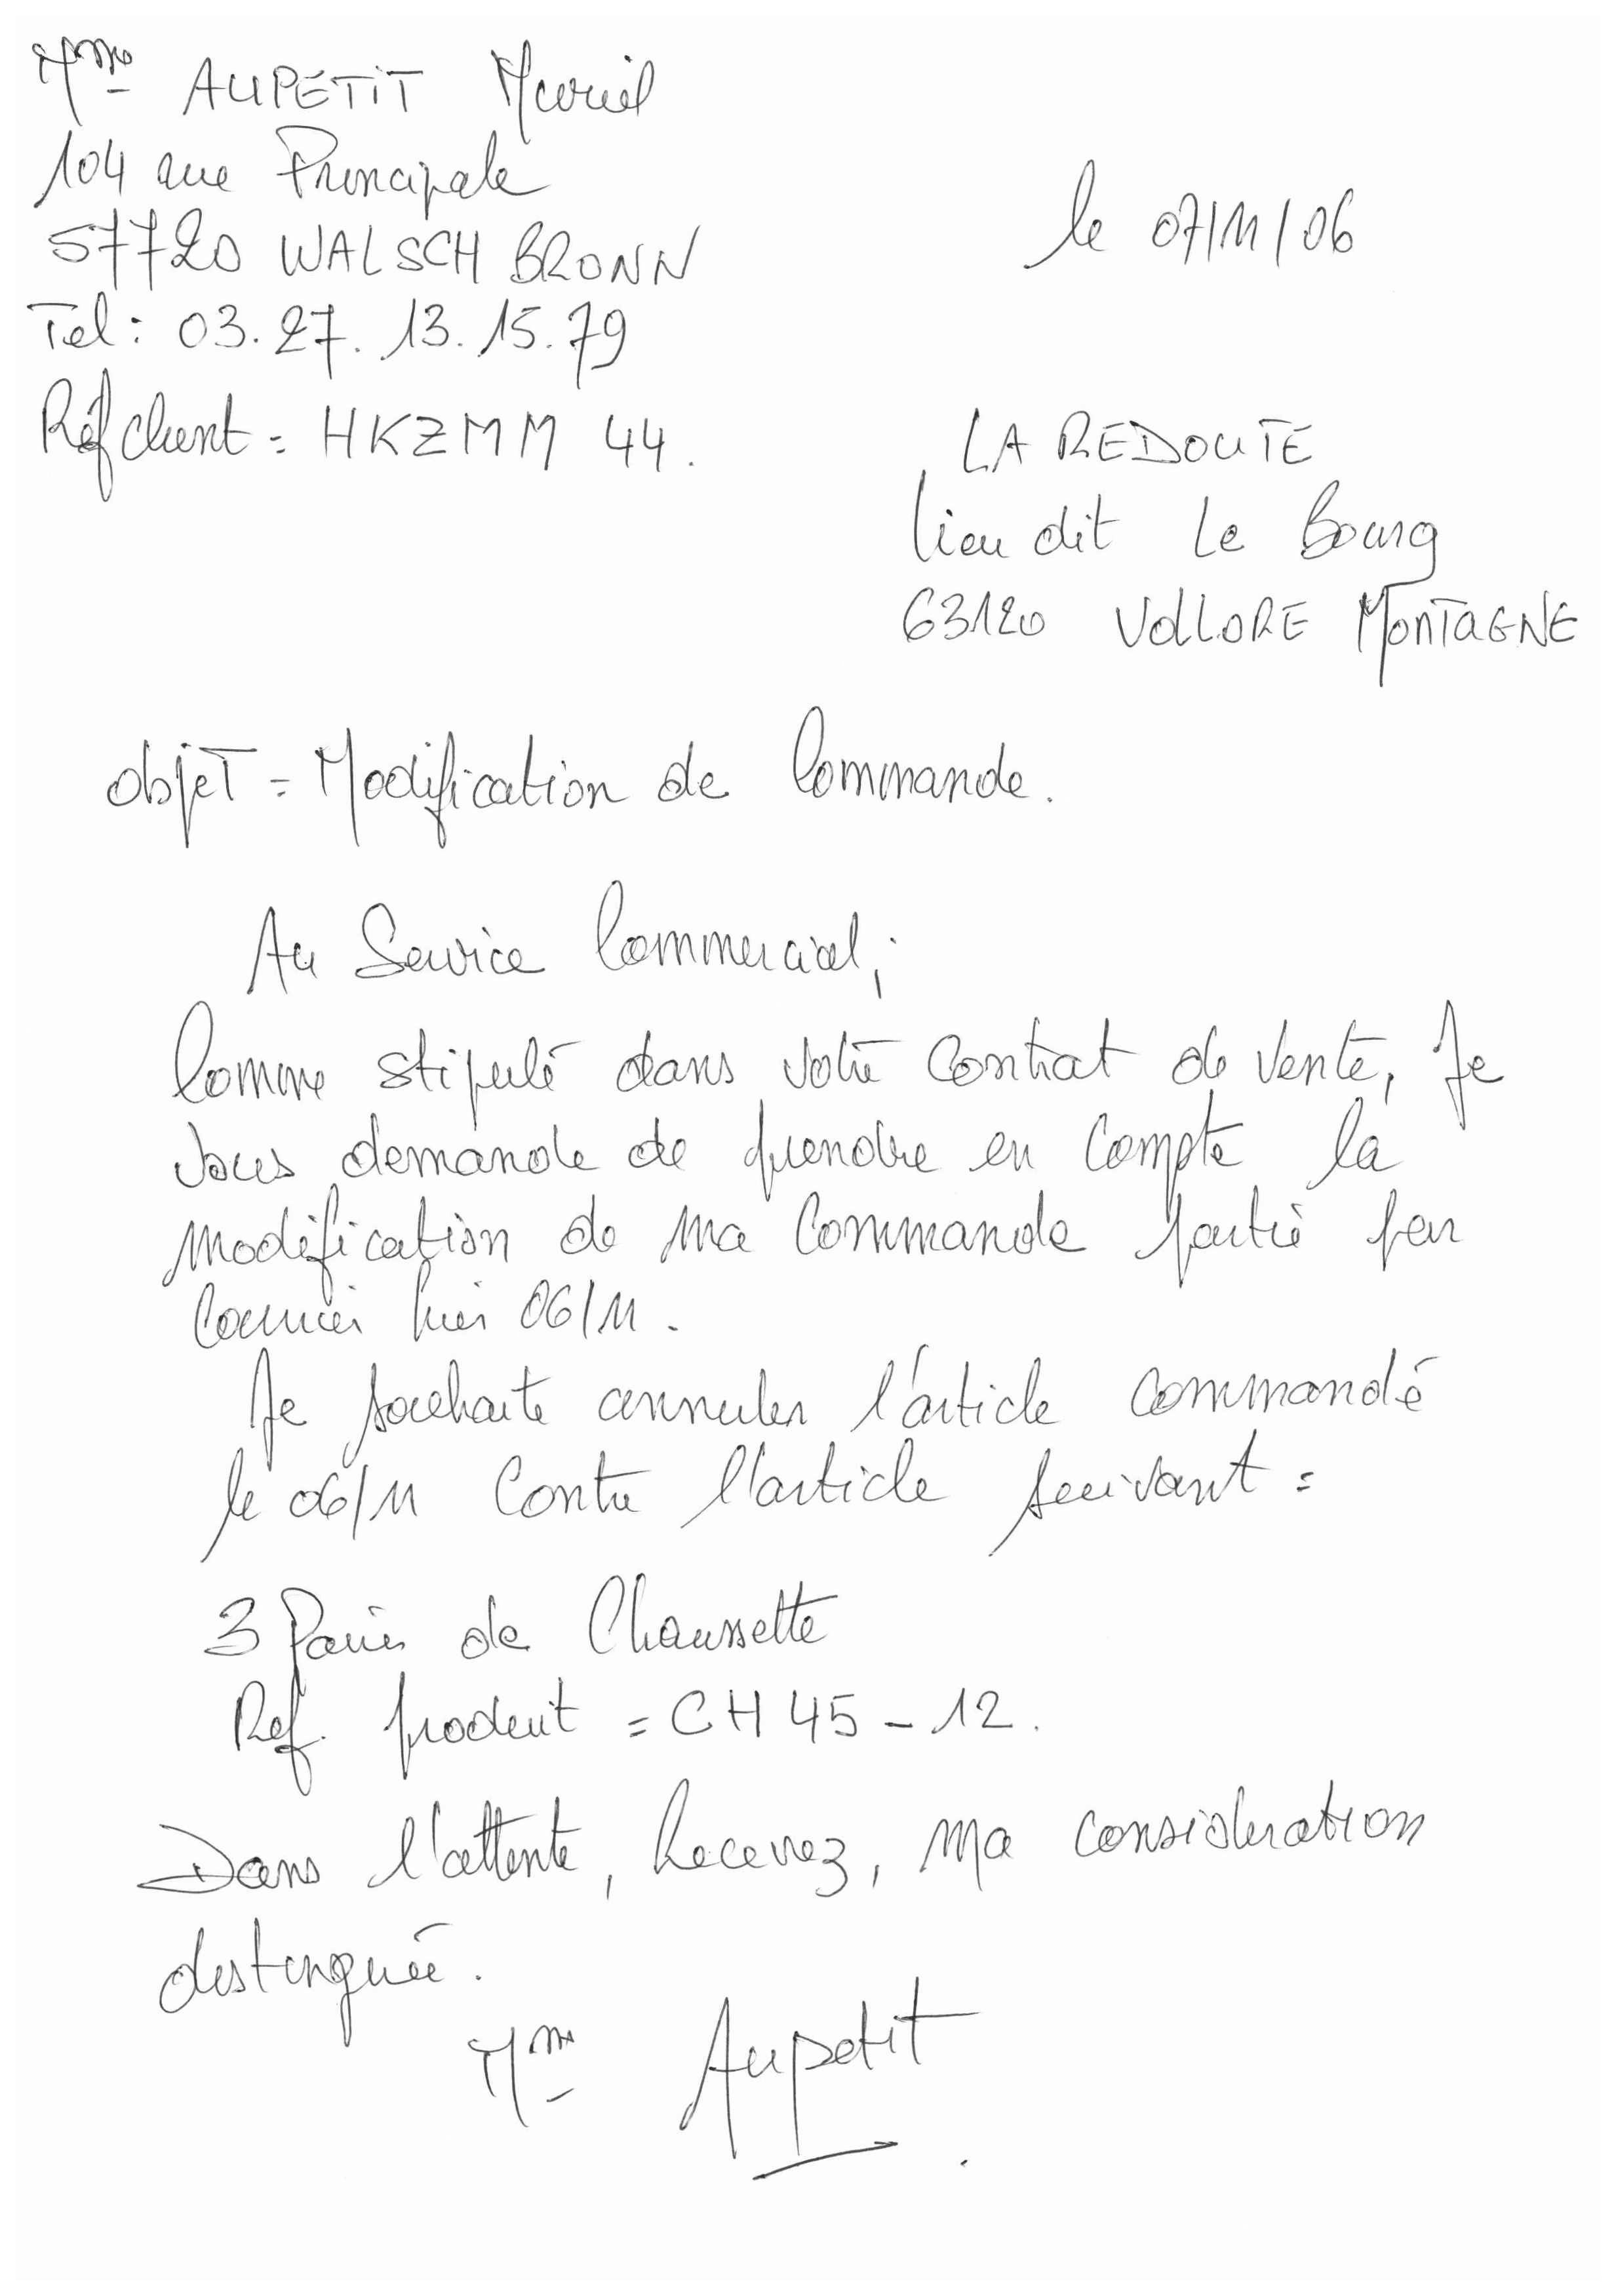 Mme AUPETIT Muriel
104 rue Principale
57720 WALSCHBRONN
Tel: 03.27.13.15.79
Réf client = HKZMM 44.
le 07/11/06
LA REDOUTE
lieu dit Le Bourg
63120 VOLLORE MONTAGNE
objet = Modification de Commande.
Au Service Commercial,
Comme stipulé dans votre contrat de vente, Je
vous demande de prendre en compte la
modification de ma commande partie par
courrier hier 06/11.
Je souhaite annuler l'article commandé
le 06/11 contre l'article suivant =
3 Paires de Chaussette
Ref. produit = CH45-12.
Dans l'attente, Recevez, ma consideration
distinguée.
Mme Aupetit